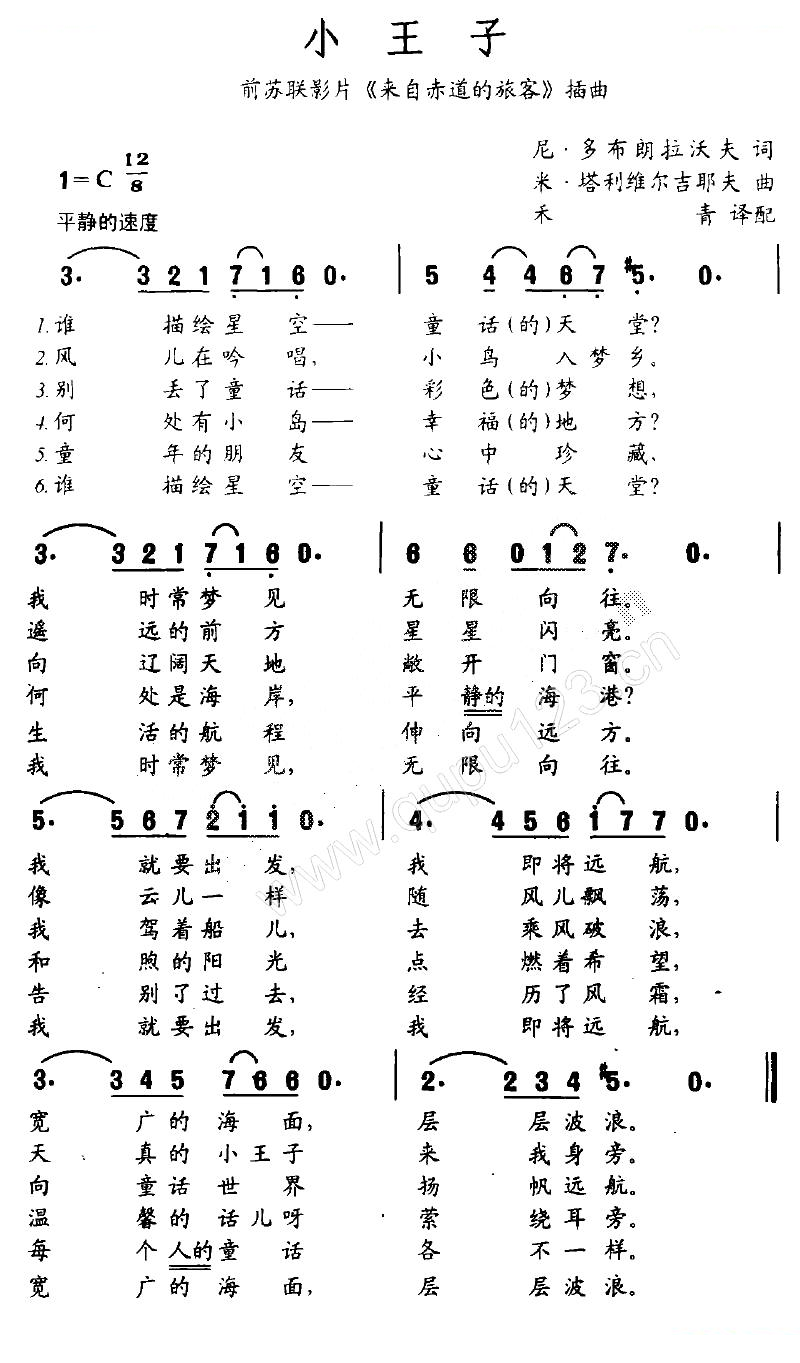 小王子
前苏联影片《来自赤道的旅客》插曲
尼·多布朗拉沃夫 词
1=C 12/8
米·塔利维尔吉耶夫 曲
平静的速度
禾 青 译配
3· 3 2 1 7 1 6 0· | 5 4 4 6 7 #5· 0· |
1.谁 描绘星 空—— 童 话(的)天 堂?
2.风 儿在吟 唱, 小 鸟 入梦乡。
3.别 丢了童 话 彩 色(的)梦 想,
4.何 处有小 岛—— 幸 福(的)地 方?
5.童 年的朋 友 心 中 珍 藏、
6.谁 描绘星 空—— 童 话(的)天 堂?
3· 3 2 1 7 1 6 0· | 6 6 0 1 2 7· 0· |
我 时常梦 见 无 限 向 往。
遥 远的前 方 星 星 闪 亮。
向 辽阔天 地 敞 开 门 窗。
何 处是海 岸, 平 静的 海 港?
生 活的航 程 伸 向 远 方。
我 时常梦 见, 无 限 向 往。
5· 5 6 7 2 1 1 0· | 4· 4 5 6 1 7 7 0· |
我 就要出 发, 我 即将远 航,
像 云儿一 样 随 风儿飘 荡,
我 驾着船 儿, 去 乘风破 浪,
和 煦的阳 光 点 燃着希 望,
告 别了过 去, 经 历了风 霜,
我 就要出 发, 我 即将远 航,
3· 3 4 5 7 6 6 0· | 2· 2 3 4 #5· 0· ‖
宽 广的 海 面, 层 层波浪。
天 真的 小王子 来 我身旁。
向 童话 世 界 扬 帆远航。
温 馨的 话儿呀 萦 绕耳旁。
每 个人的童 话 各 不一样。
宽 广的 海 面, 层 层波浪。
www.qupu123.cn